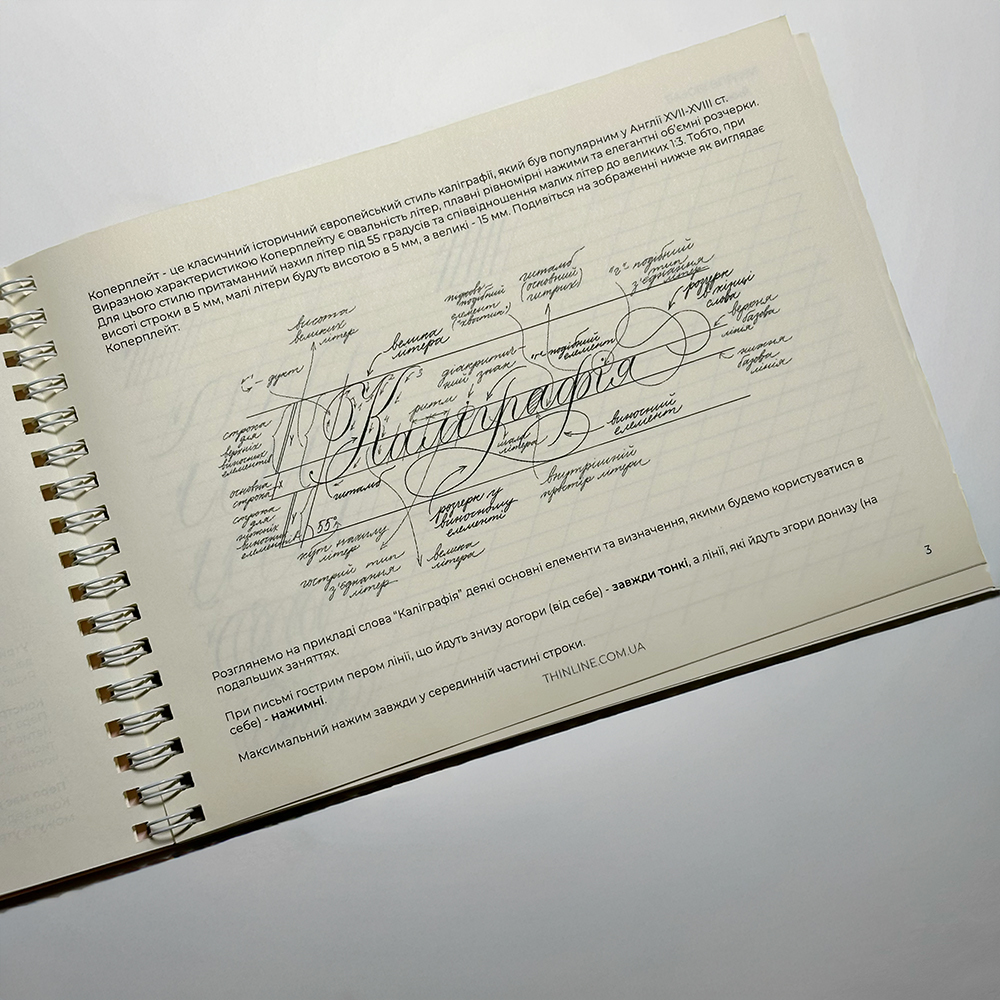 Коперплейт - це класичний історичний європейський стиль каліграфії, який був популярним у Англії XVII-XVIII ст.
Виразною характеристикою Коперплейту є овальність літер, плавні рівномірні нажими та елегантні об'ємні розчерки.
Для цього стилю притаманний нахил літер під 55 градусів та співвідношення малих літер до великих 1:3. Тобто, при
висоті строки в 5 мм, малі літери будуть висотою в 5 мм, а великі - 15 мм. Подивіться на зображенні нижче як виглядає
Коперплейт:
висота
великих
літер
велика
літера
"хвостик"
елемент
штамб
(основний
штрих)
"г" подібний
тип
з'єднання
літер
розчерк
у кінці
слова
верхня
базова
лінія
нижня
базова
лінія
- дукт
діакритич-
ний знак
подібний
елемент
ритм
Каліграфія
строка
для
верхніх
виносних
елементів
основна
строка
строка
для
нижніх
виносних
елементів
штамб
55°
кут нахилу
літер
гострий тип
з'єднання
літер
велика
літера
розчерк у
виносному
елементі
мала
літера
виносний
елемент
внутрішній
простір літери
Розглянемо на прикладі слова "Каліграфія" деякі основні елементи та визначення, якими будемо користуватися в
подальших заняттях.
При письмі гострим пером лінії, що йдуть знизу догори (від себе) - завжди тонкі, а лінії, які йдуть згори донизу (на
себе) - нажимні.
Максимальний нажим завжди у серединній частині строки.
THINLINE.COM.UA
3